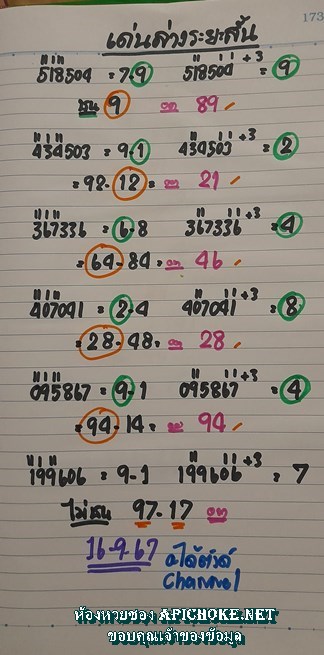 173
เด่นล่างระยะสั้น
518504 = 7-9 518504 +3 = 9
ชน 9 ออก 89
434503 = 9-1 434503 +3 = 2
= 92-12 = ออก 21
367336 = 6-8 367336 +3 = 4
= 64-84 = ออก 46
407041 = 2-4 407041 +3 = 8
= 28-48 = ออก 28
095867 = 9-1 095867 +3 = 4
= 94-14 = ออก 94
199606 = 9-1 199606 +3 = 7
ไม่ชน 97-17
16-9-67
Channel
ห้องหวยซอง APICHOKE.NET
ขอบคุณเจ้าของข้อมูล